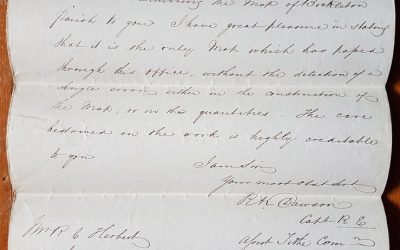 the Map of Bockleton
parish to you I have great pleasure in stating
that it is the only Map which has passed
through this office, without the detection of a
single error either in the construction of
the Map, or in the quantities. The care
bestowed on the work is highly creditable
to you
I am Sir
Your most obdt Servt
R K Dawson
Captn R. E.
Asst Tithe Comr
Mr R C Herbert